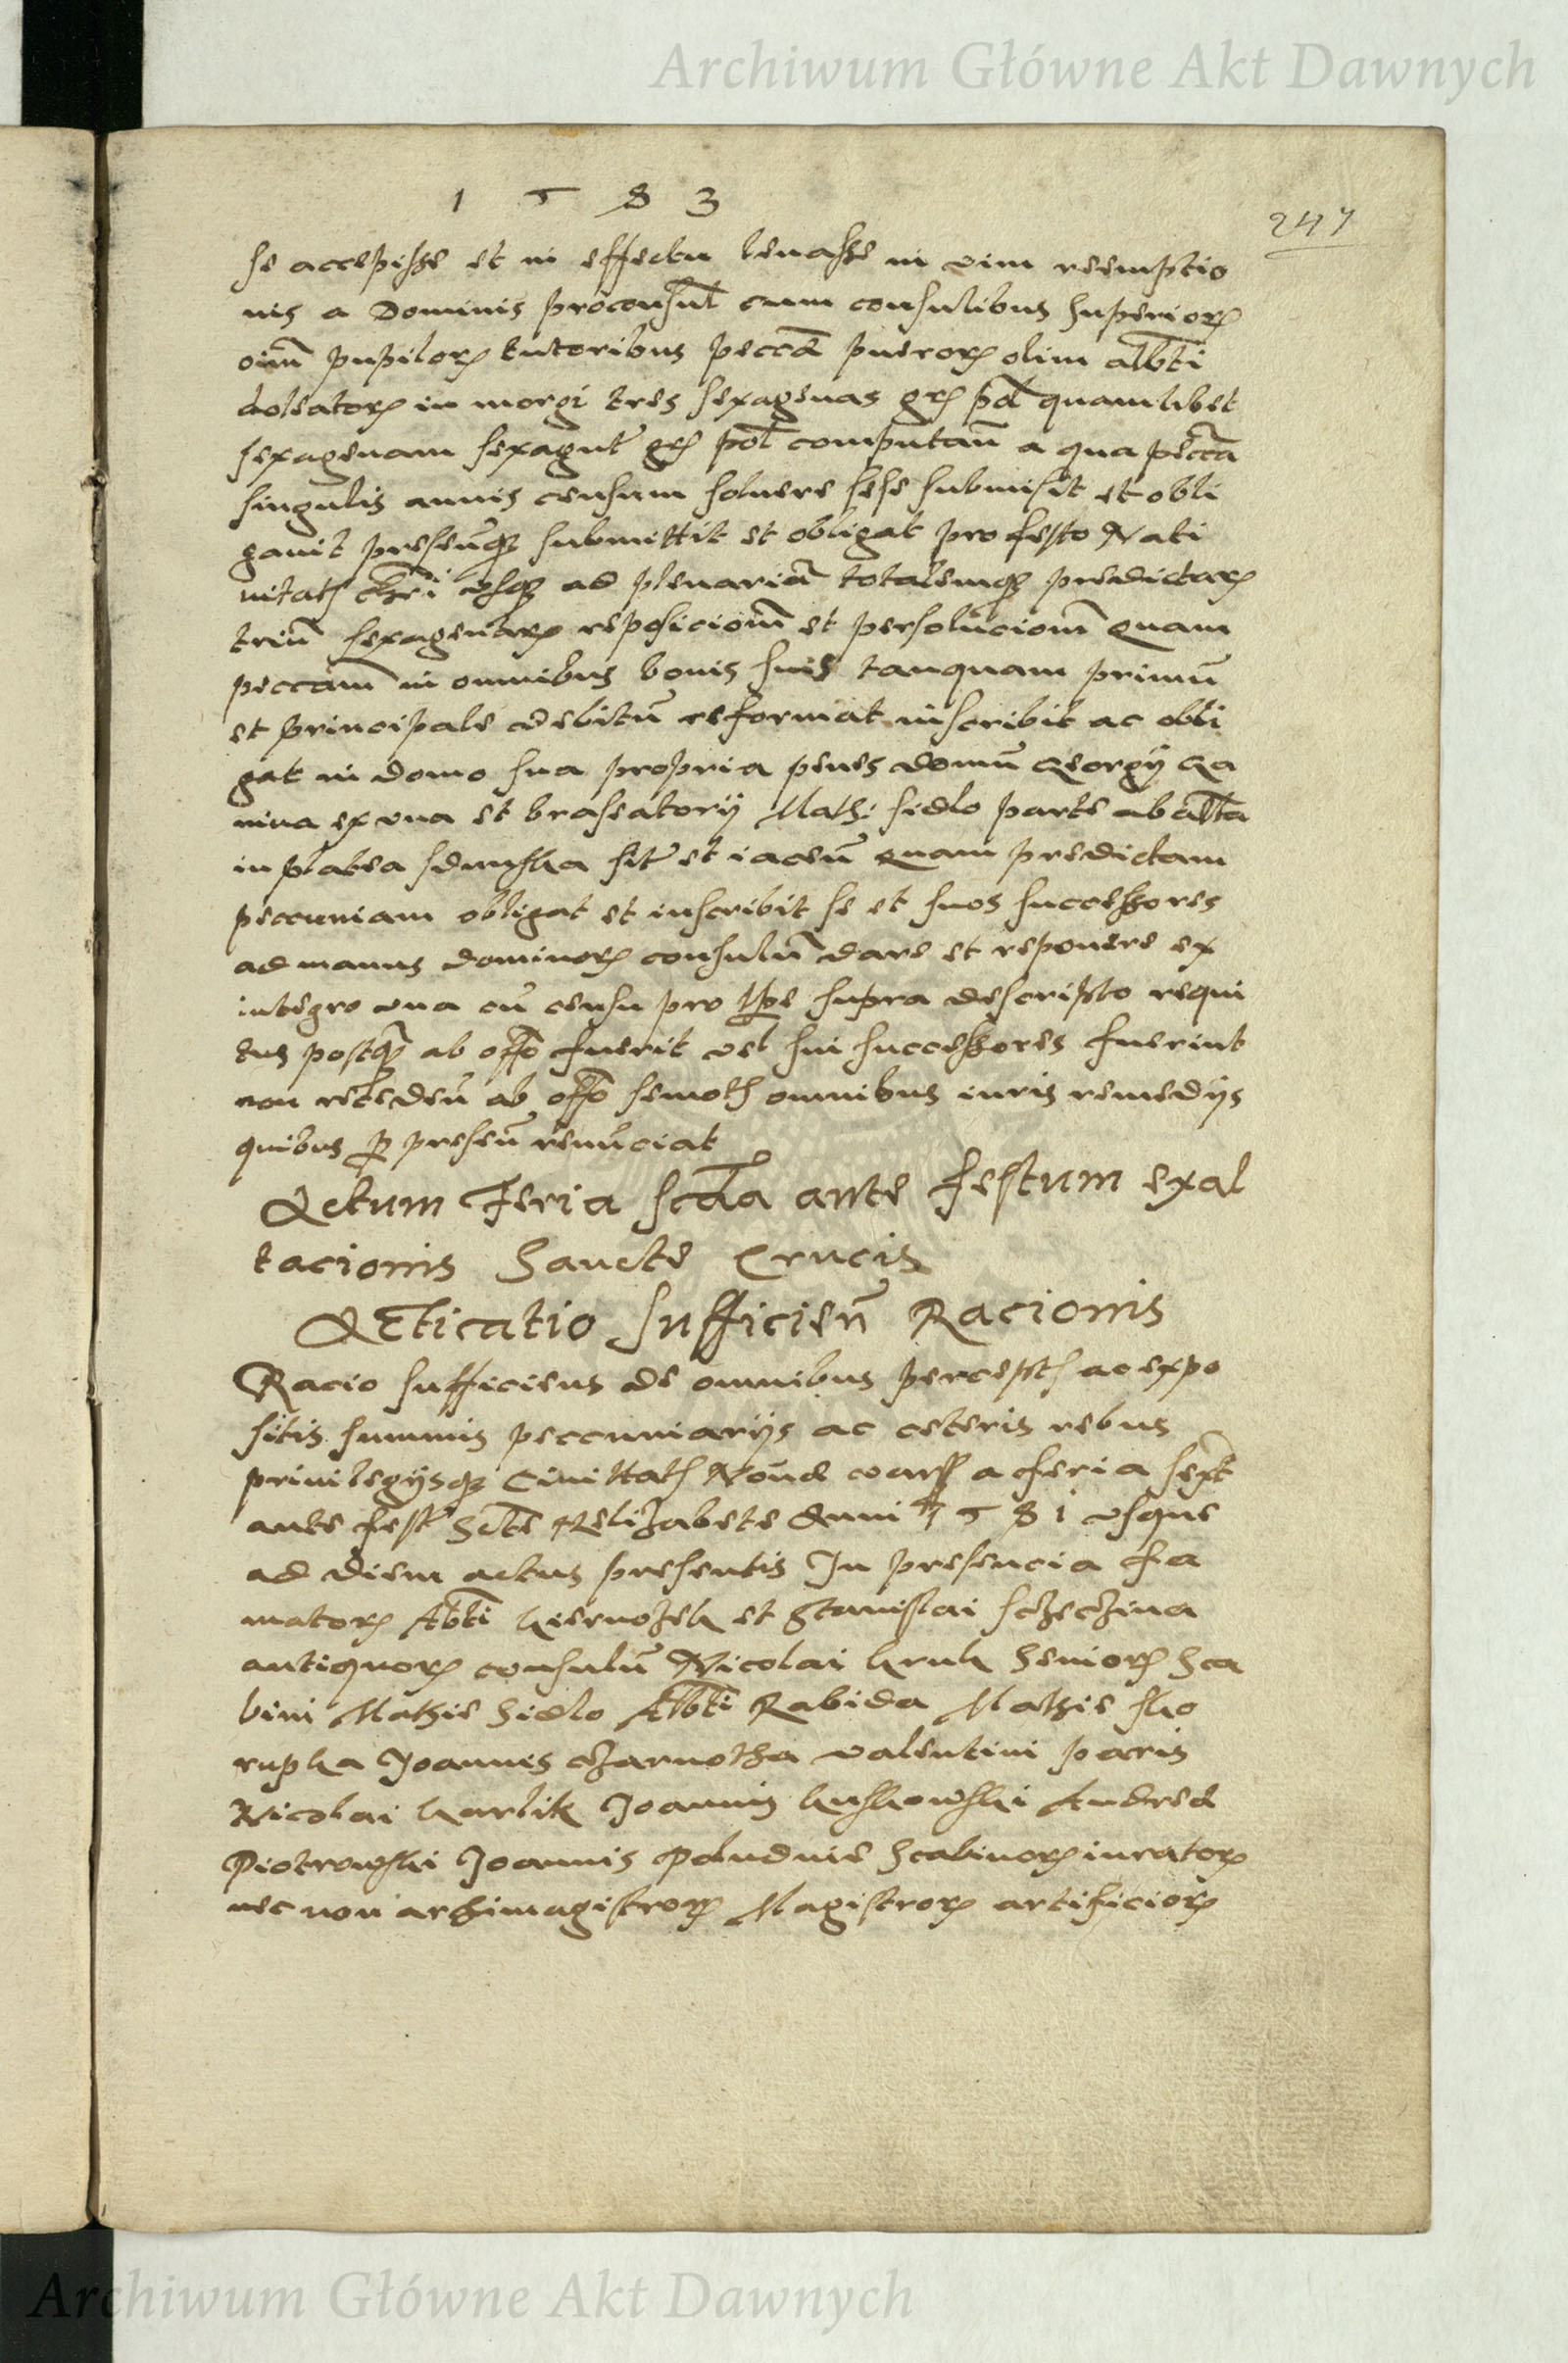 Archiwum Główne Akt Dawnych
1 5 8 3
247
se accepisse et in effectu leuasse in vim reemptio
nis a Dominis proconsul cum consulibus superior
oim pupilor tutoribus peccã pueror olim albti
doleator in morgi tres sexagenas gr pol quamlibet
sexagenam sexagint gr pol computan a qua peccã
singulis annis censum soluere sese submisit et obli
gauit presenq submittit et obligat pro festo Nati
uitat Chri vsq ad plenariã totalemq predictar
triũ sexagenar reposicionẽ et persolucionẽ quam
peccam in omnibus bonis suis tanquam primũ
et principale debitũ reformat inscribit ac obli
gat in domo sua propria penes domũ Georgij Ka
nina ex vna et braseatorij Math: sidlo parte ab alta
in platea sdunska sit et iacen quam predictam
peccuniam obligat et inscribit se et suos successores
ad manus dominor consulũ dare et reponere ex
integro vna cũ censu pro tpe supra descripto requi
tus postq ab offo fuerit vel sui successores fuerint
non recedeñ ab offo semot omnibus iuris remedijs
quibus p preseñ renũciat
Actum Feria scda ante festum exal
tacionis Sancte Crucis
Acticatio sufficieñ Racionis
Racio sufficiens de omnibus percept ac expo
sitis summis peccuniarijs ac ceteris rebus
priuilegijsq Ciuittat Noue warss a feria sext
ante fest Scte Helizabete Anni 1 5 8 1 vsque
ad diem actus presentis In presencia fa
mator Albti kiernozek et Stanislai sczeczina
antiquor consulũ Nicolai kruk Senior Sca
bini Mathie Sidlo Albti Rabida Mathie sko
rupka Joannes czarnotha valentini paris
Nicolai karlik Joannis kuskowski Andree
Piotrowski Joannis Poludnie Scabinor iurator
nec non archimagistror Magistror artificior
Archiwum Główne Akt Dawnych